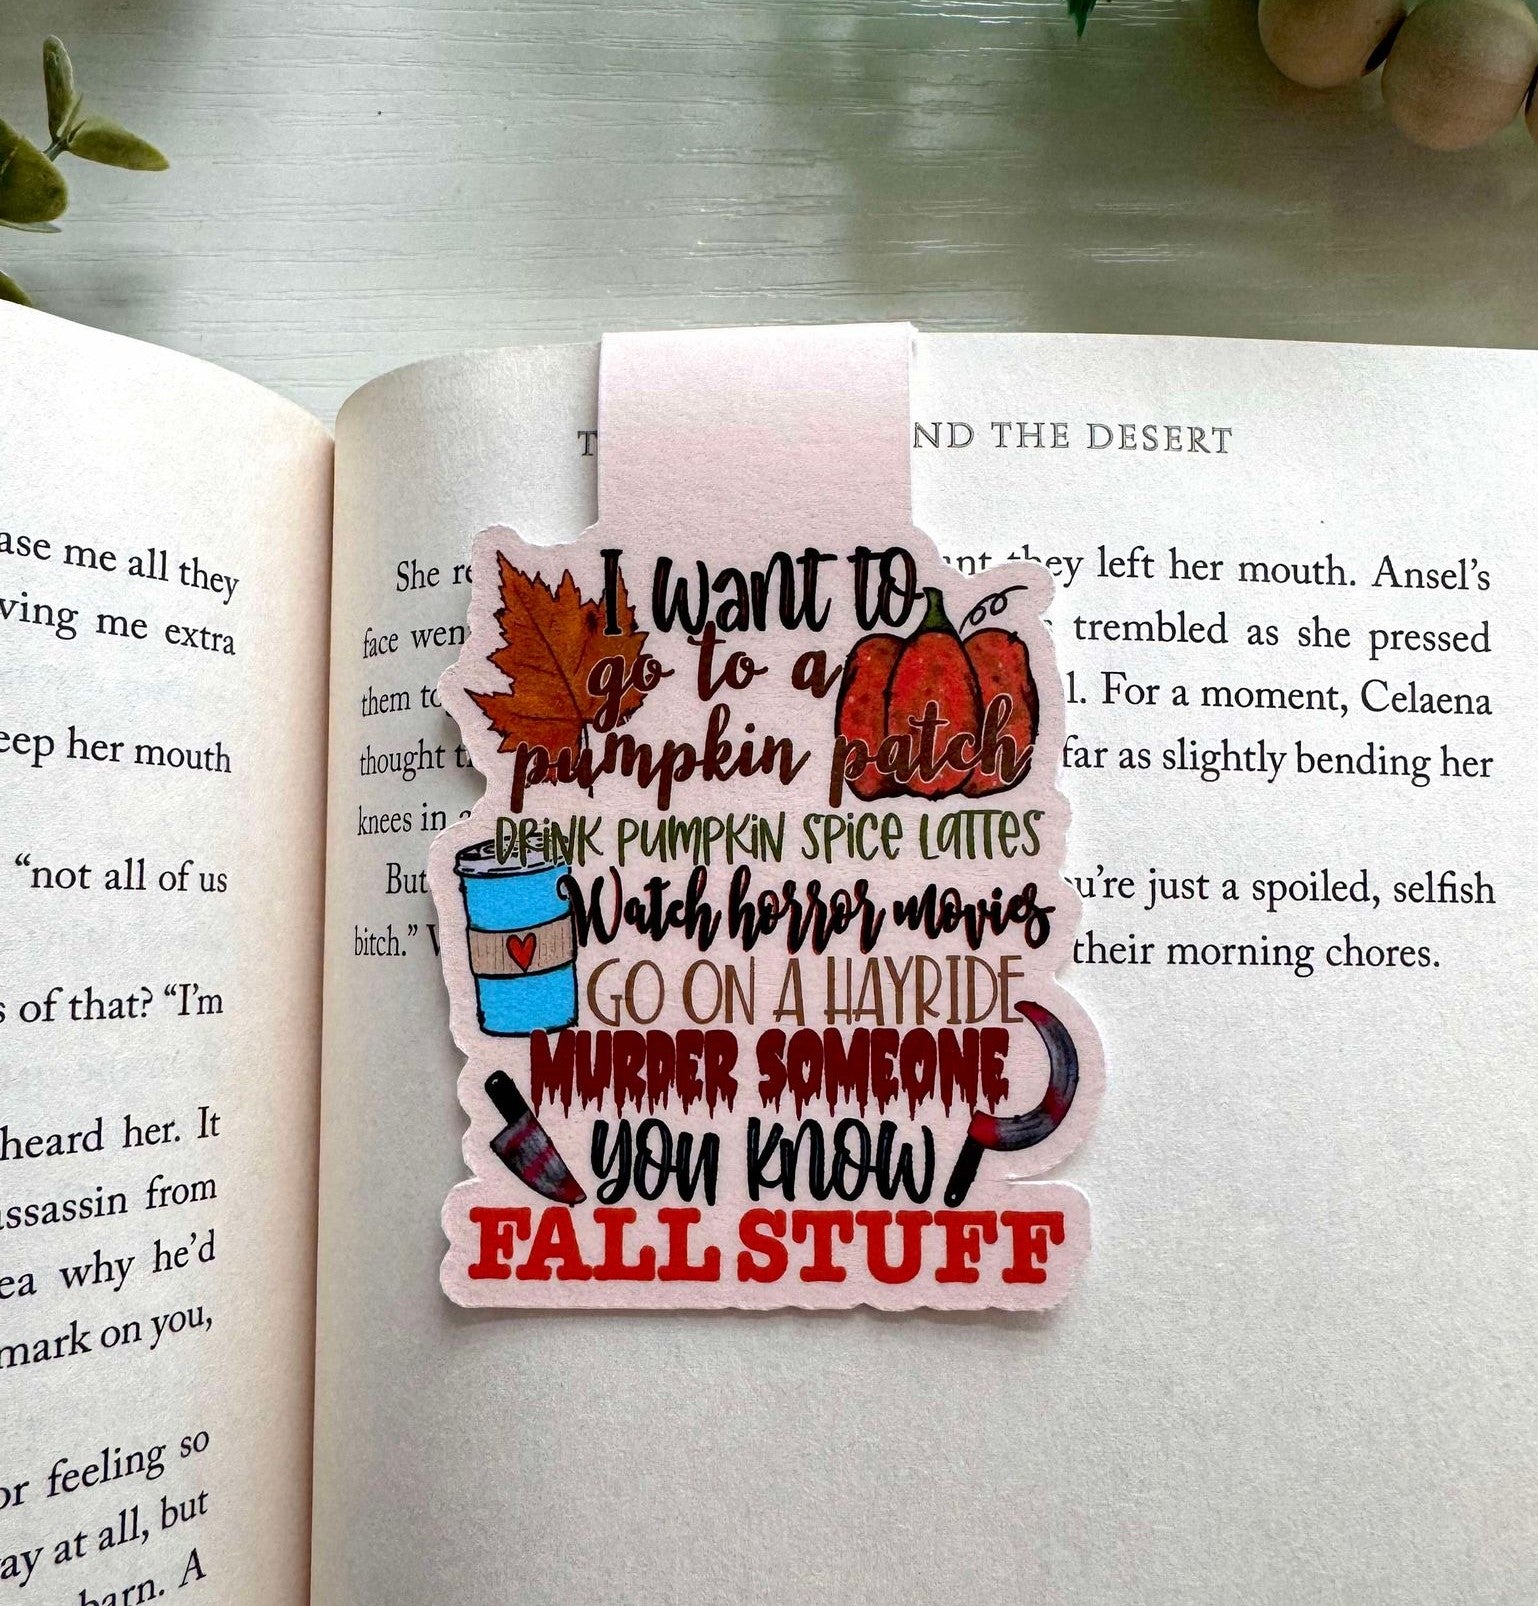 ase me all they
ving me extra
eep her mouth
“not all of us
s of that? “I’m
heard her. It
assassin from
ea why he’d
mark on you,
or feeling so
ay at all, but
barn. A
ND THE DESERT
She
they left her mouth. Ansel’s
face wen
trembled as she pressed
them to
l. For a moment, Celaena
thought
far as slightly bending her
knees in
But
u’re just a spoiled, selfish
bitch.”
their morning chores.
I want to
go to a
pumpkin patch
DRINK PUMPKIN SPICE LATTES
Watch horror movies
GO ON A HAYRIDE
MURDER SOMEONE
YOU KNOW
FALL STUFF